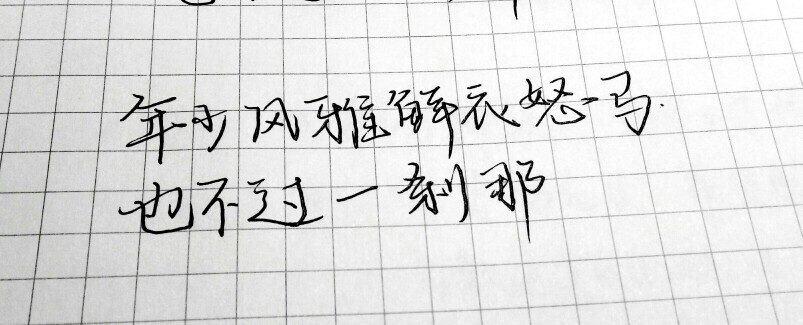 年少风雅鲜衣怒马
也不过一刹那